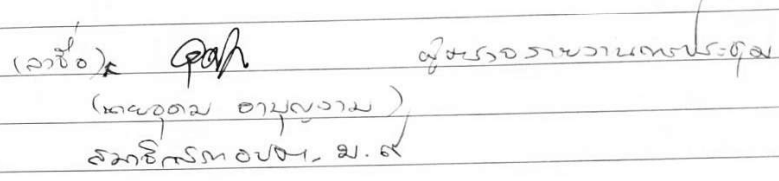 (ลงชื่อ) ผู้ตรวจรายงานการประชุม
(นายอุดม อาบุญงาม)
สมาชิกสภา อบต. ม. ๙